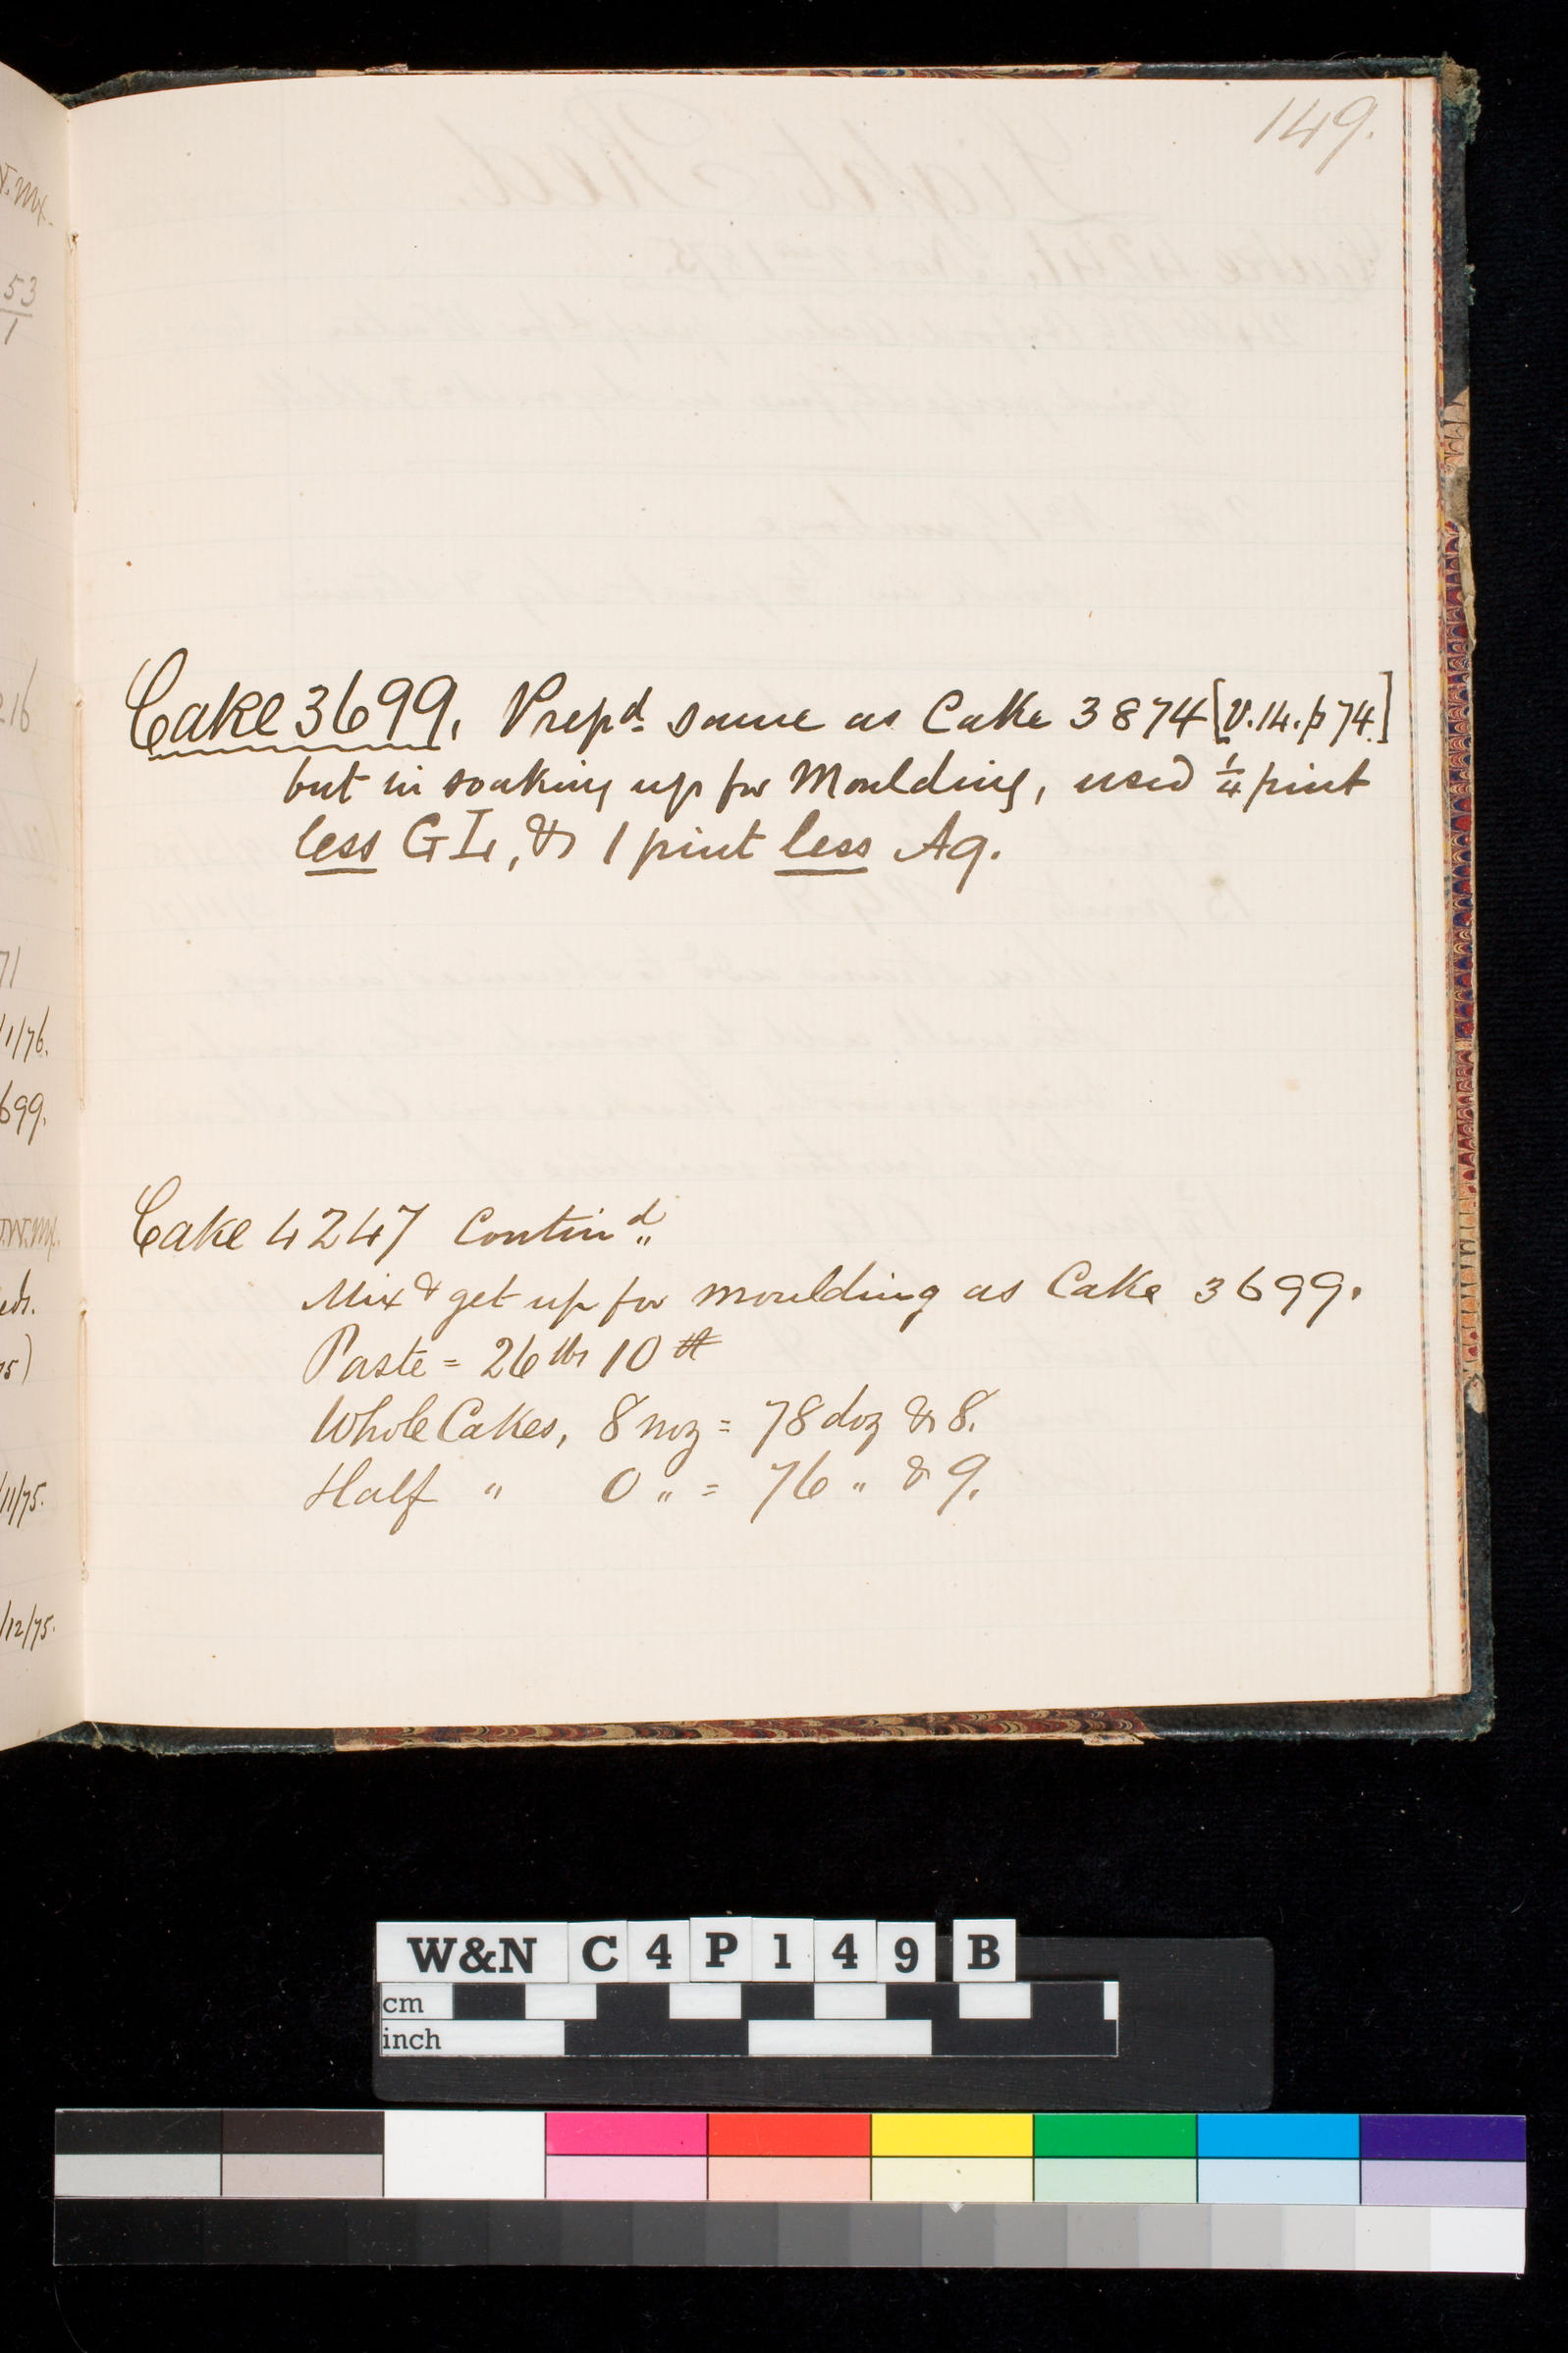 149.
Cake 3699. Prepd. same as Cake 3874 [V.14. p 74.]
but in soaking up for Moulding, used ¼ pint
less G I, & 1 pint less Aq.
Cake 4247 Contind.
Mix & get up for moulding as Cake 3699.
Paste = 26 lbs 10
Whole Cakes, 8 = 78 doz & 8.
Half " 0 " = 76 " & 9.
53
1
216
71
/1/76.
699.
/11/75.
/12/75.
W&N C4P149 B
cm
inch